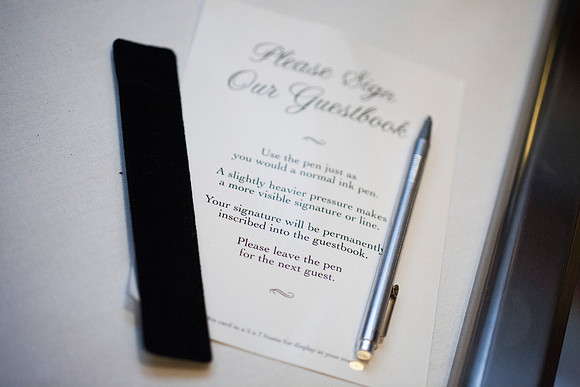 Please Sign
Our Guestbook
Use the pen just as
you would a normal ink pen.
A slightly heavier pressure makes
a more visible signature or line.
Your signature will be permanently
inscribed into the guestbook.
Please leave the pen
for the next guest.
this card in a 5 x 7 frame for display at your